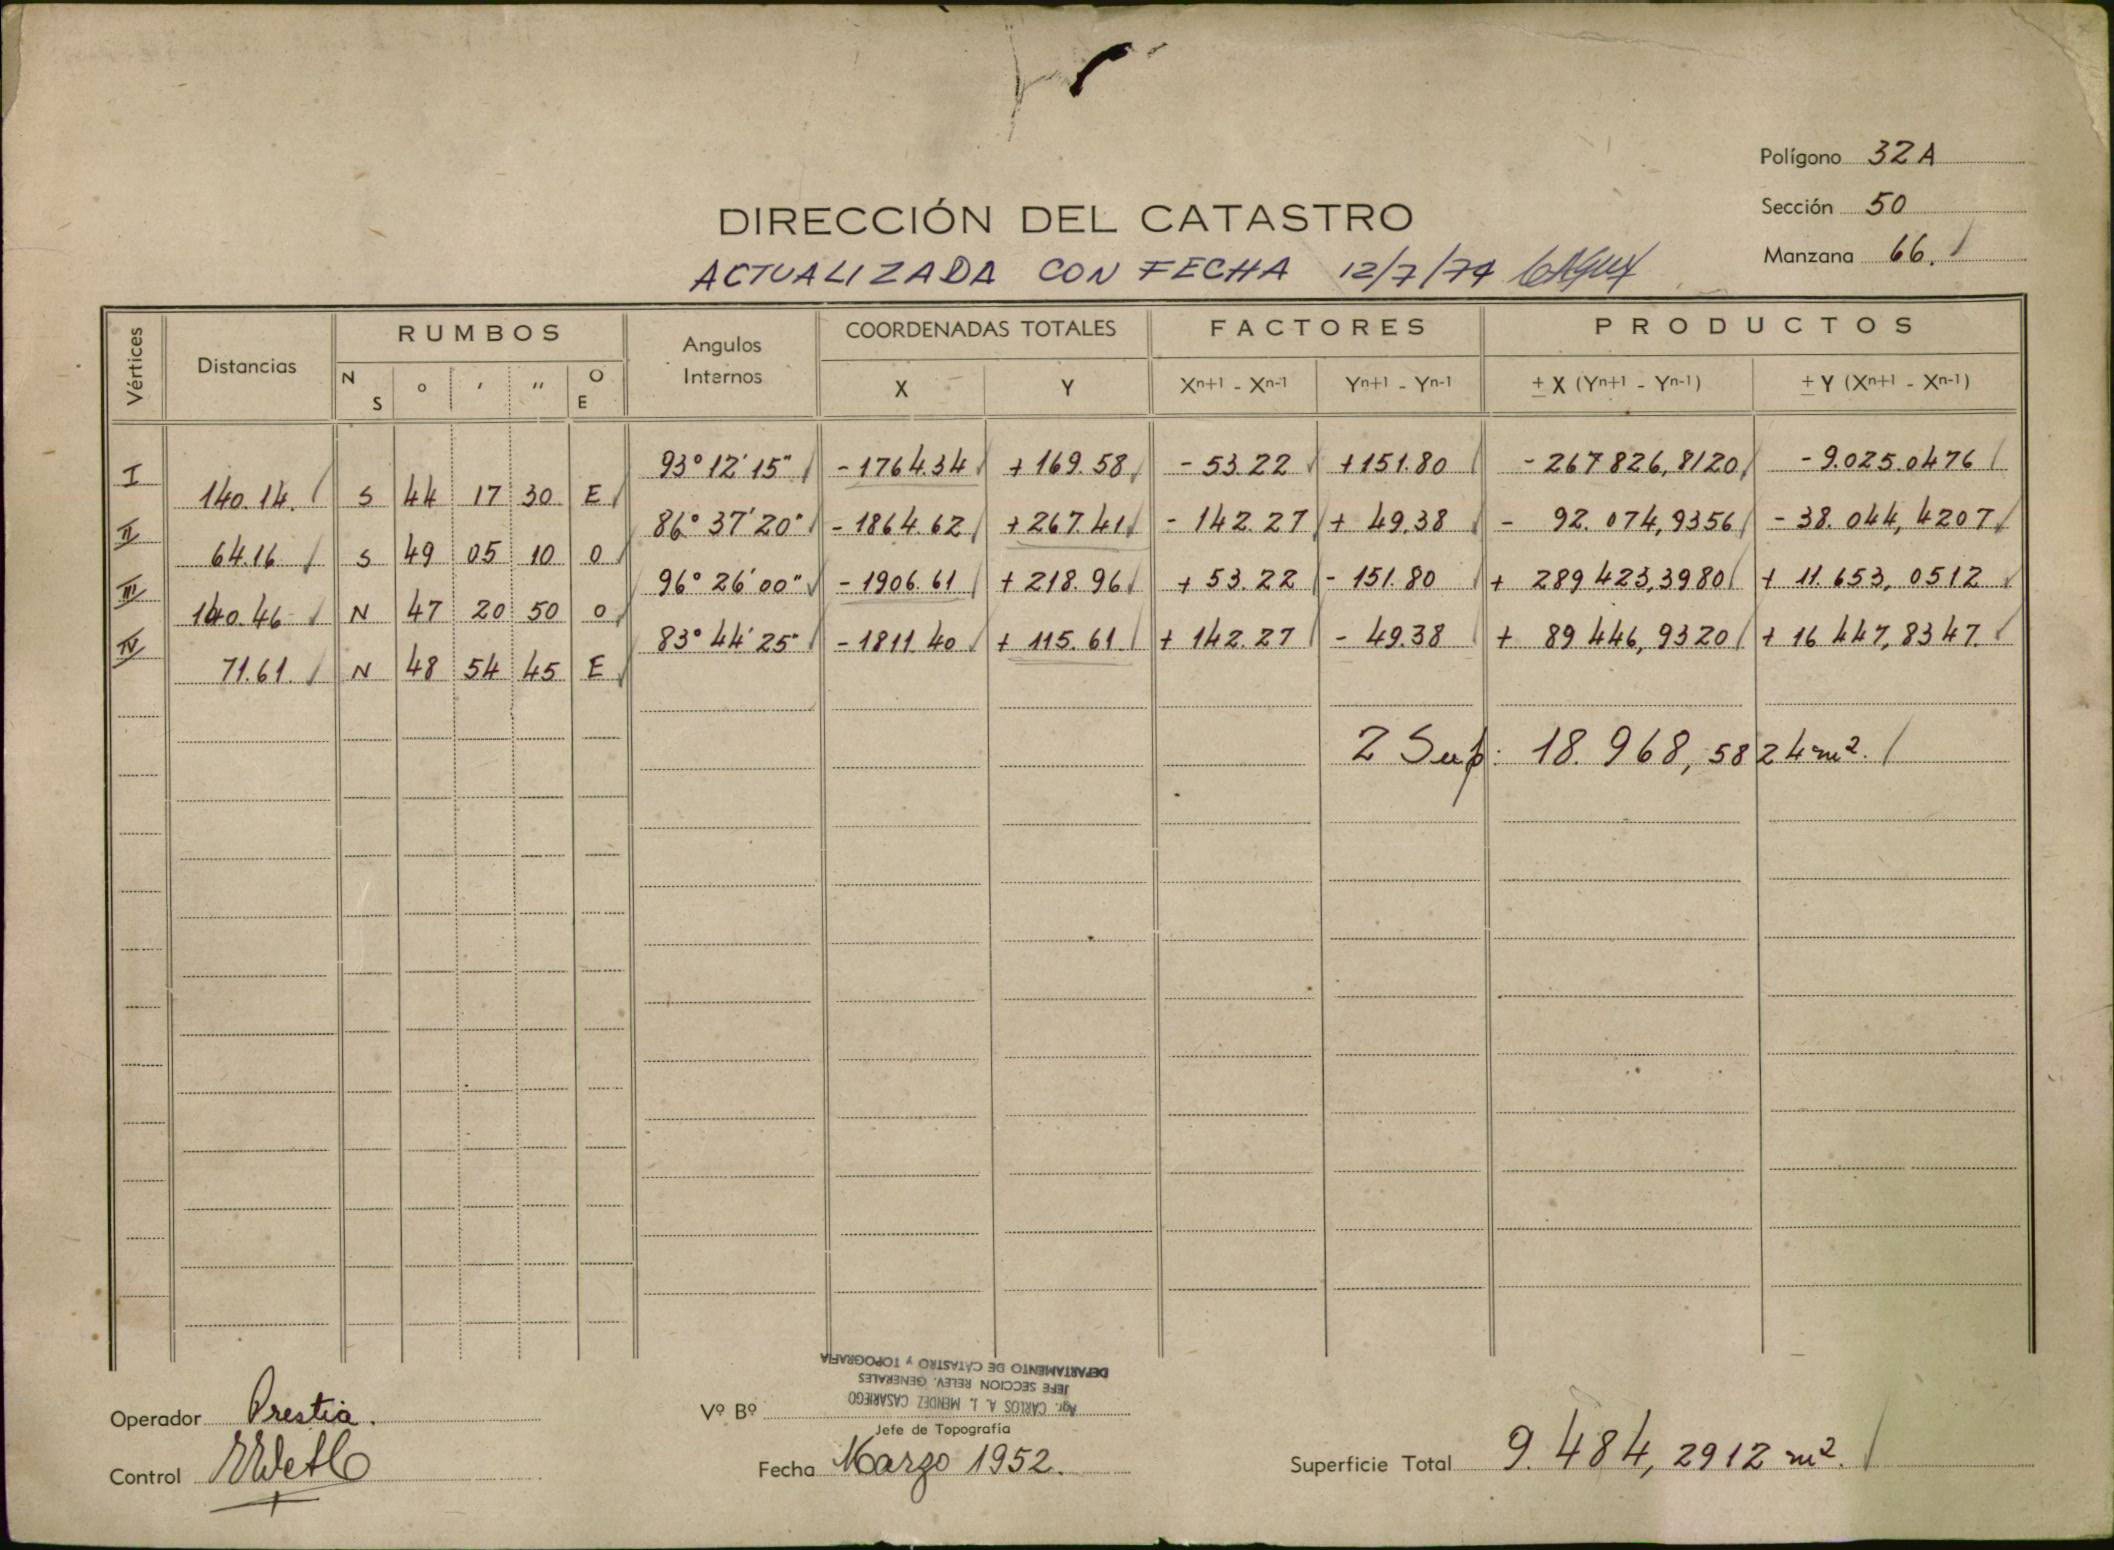 Polígono 32A
Sección 50
Manzana 66.
DIRECCIÓN DEL CATASTRO
ACTUALIZADA CON FECHA 12/7/74
Vértices Distancias RUMBOS Angulos Internos COORDENADAS TOTALES FACTORES PRODUCTOS
N S ° ' " O E X Y Xn+1 - Xn-1 Yn+1 - Yn-1 ± X (Yn+1 - Yn-1) ± Y (Xn+1 - Xn-1)
I 93° 12' 15" - 1764.34 + 169.58 - 53.22 + 151.80 - 267 826,8120 - 9.025.0476
140.14. S 44 17 30 E
II 86° 37' 20" - 1864.62 + 267.41 - 142.27 + 49.38 - 92.074,9356 - 38.044,4207
64.16 S 49 05 10 O
III 96° 26' 00" - 1906.61 + 218.96 + 53.22 - 151.80 + 289 423,3980 + 11.653,0512
140.46 N 47 20 50 O
IV 83° 44' 25" - 1811.40 + 115.61 + 142.27 - 49.38 + 89 446,9320 + 16 447,8347.
71.61. N 48 54 45 E
2 Sup: 18.968,5824 m².
DEPARTAMENTO DE CATASTRO y TOPOGRAFIA
JEFE SECCION RELEV. GENERALES
Agr. CARLOS A. L. MENDEZ CASARIEGO
Operador Prestia.
Vº Bº
Jefe de Topografía
Control
Fecha Marzo 1952.
Superficie Total 9.484,2912 m².